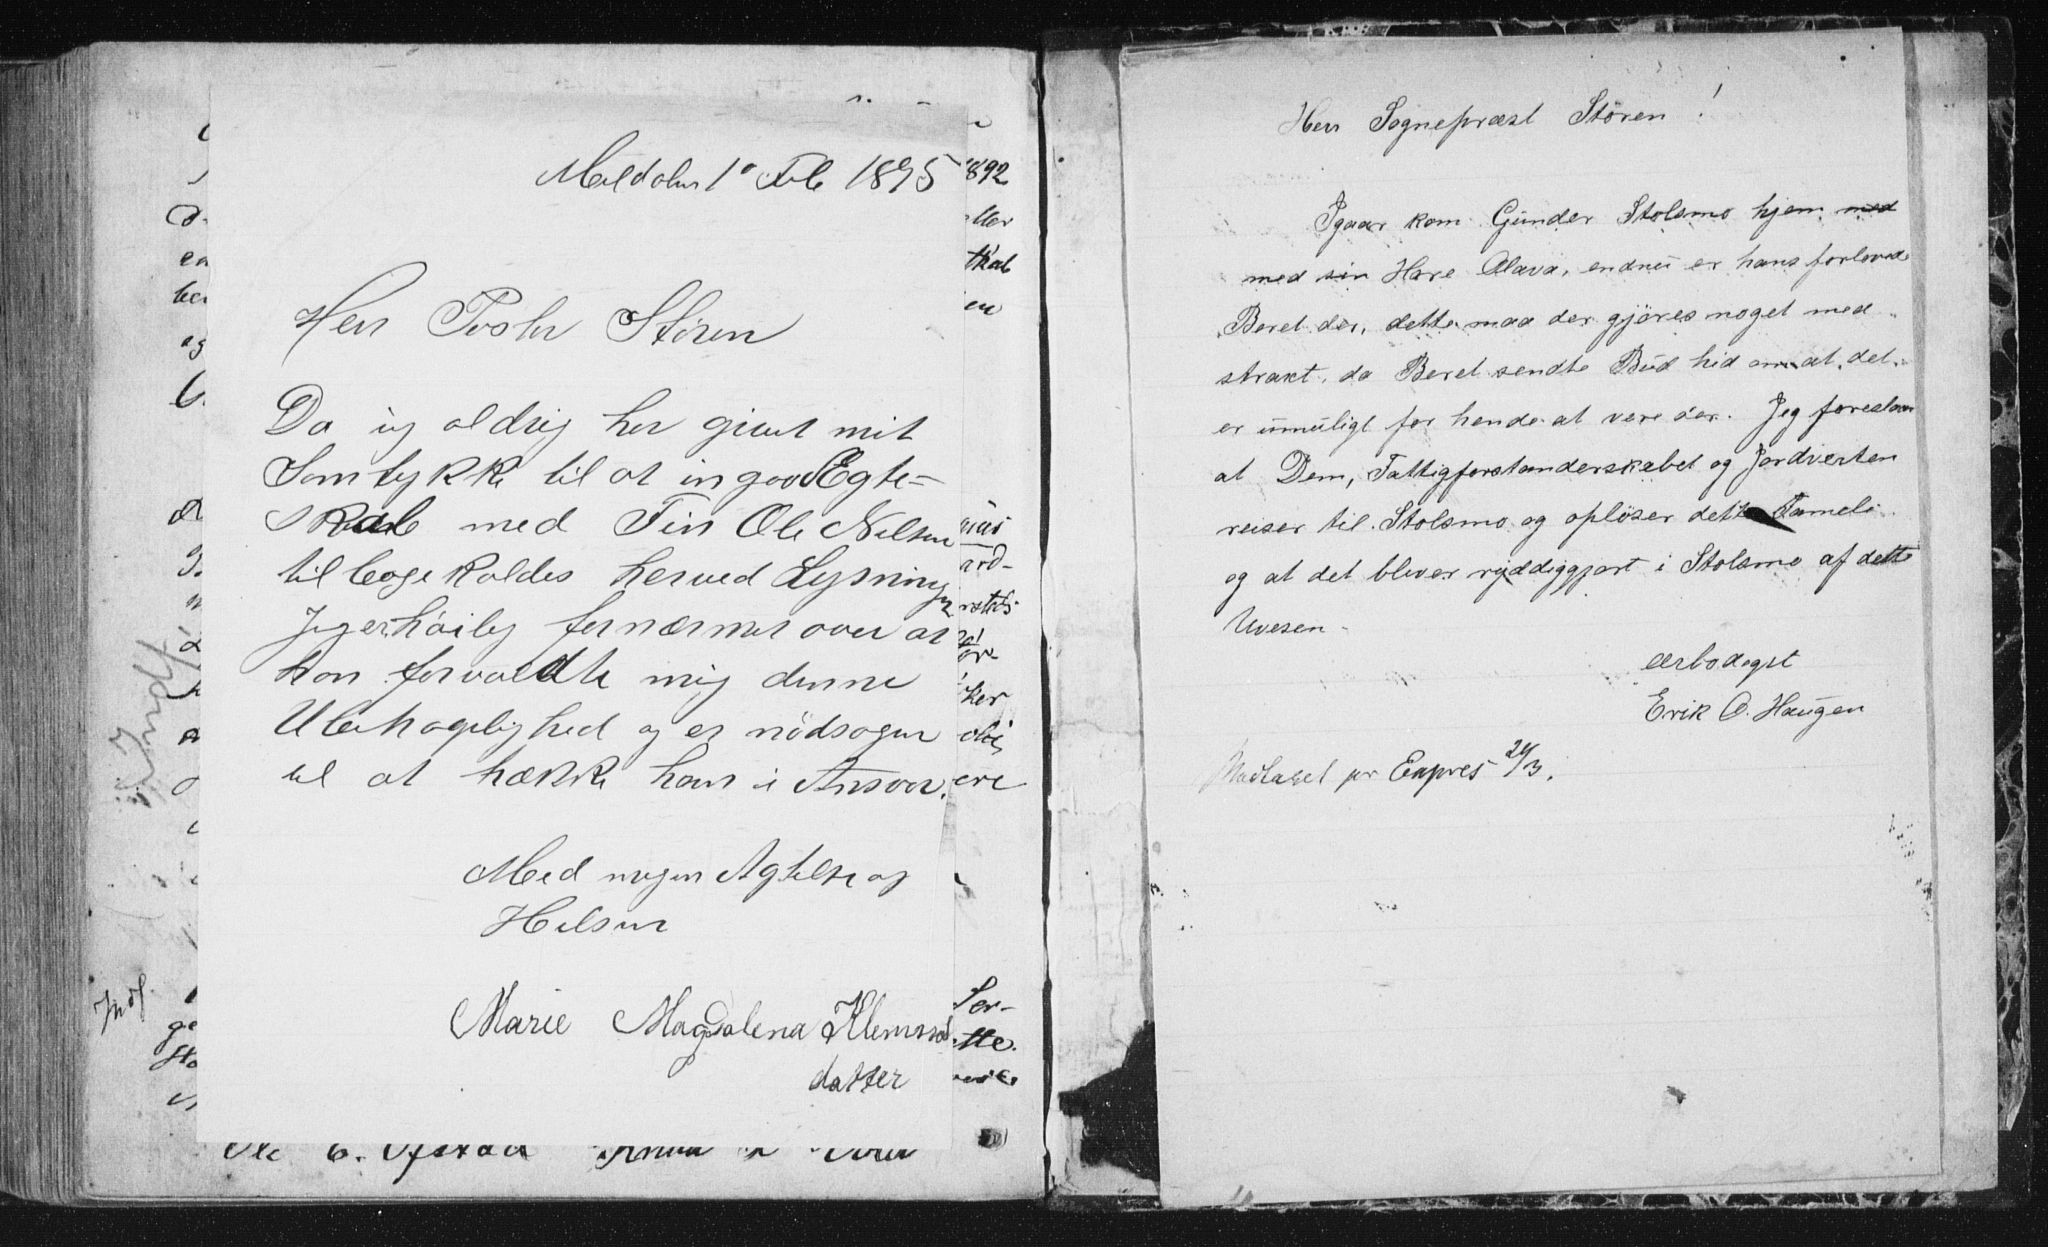 Meldalen 1o Feb 1895
Herr Pastor Støren
Da jeg aldrig har givet mit
Samtykke til at ingaa Egte=
skab med Fin Ole Nilsen
tilbagekaldes herved Lysningen
Jeg er høilig fornærmet over at
han forvoldte mig denne
Ubehagelighed og er nødsaget
til at trække ham i Ansvar.
Med megen Agtelse og
Hilsen
Marie Magdalena Klemmsd
datter
Indf.
Indf
1892
Herr Sogneprest Støren!
Igaar kom Gunder Stolsmo hjem med
med sin Hore Olava, endnu er hans forlovede
Beret der, dette maa der gjöres noget med
strakt, da Beret sendte Bud hid om at det
er umuligt for hende at vere der. Jeg foreslaar
at Dem, Fattigforstanderskabet og Jordverten
reiser til Stolsmo og oplöser dette Fameli
og at det bliver ryddiggjort i Stolsmo af dette
Uvesen.
ærbødigst
Erik O. Haugen
Modtaget pr Expres 24/3.